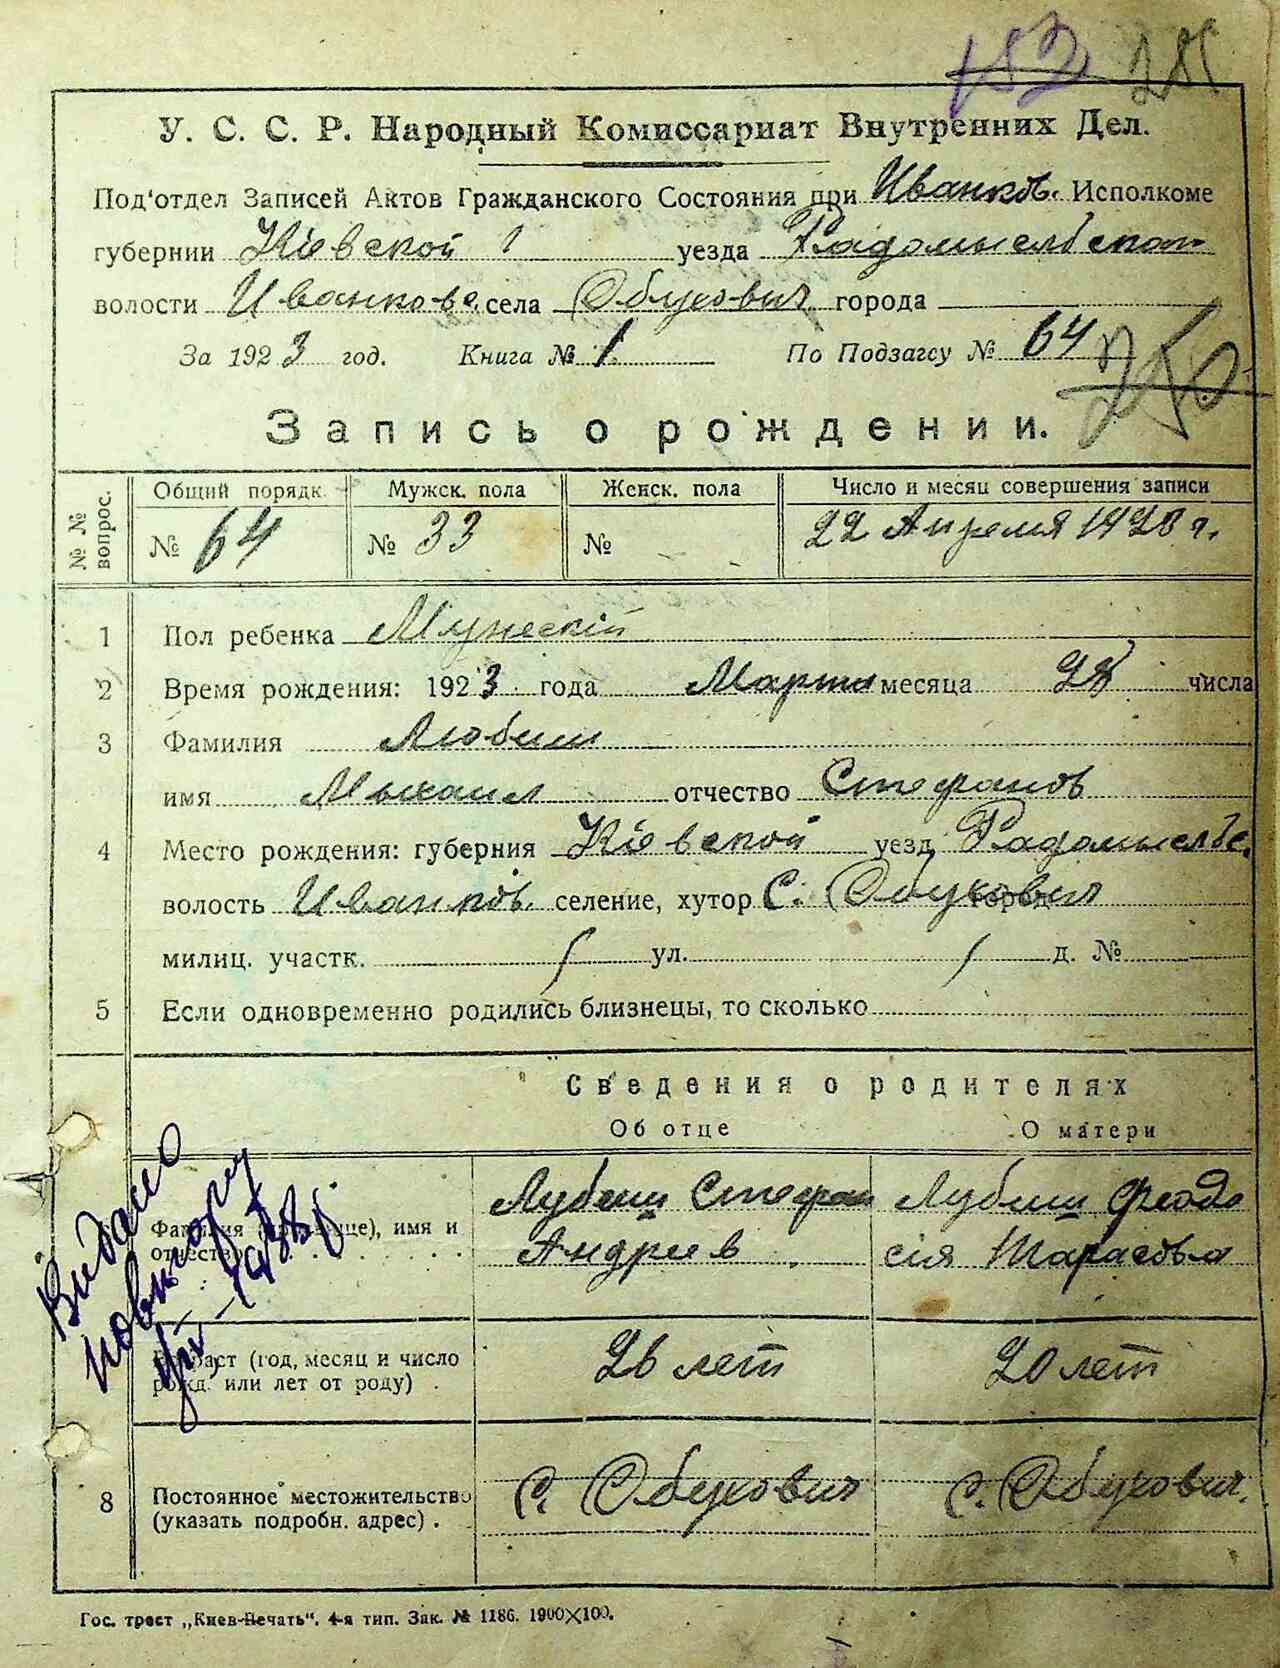 У. С. С. Р. Народный Комиссариат Внутренних Дел.
Под'отдел Записей Актов Гражданского Состояния при Иванков. Исполкоме
губернии Кіевской уезда Радомысльском
волости Иванковс. села Обухович города
За 1923 год. Книга № 1 По Подзагсу № 64
250
Запись о рождении.
№ № вопрос.
Общий порядк. Мужск. пола Женск. пола Число и месяц совершения записи
№ 64 № 33 № 22 Апреля 1923 г.
1 Пол ребенка Мужескій
2 Время рождения: 1923 года Марта месяца 28 числа
3 Фамилия Любиш
имя Михаил отчество Стефанов
4 Место рождения: губерния Кіевской уезд Радомысльс.
волость Иванков. селение, хутор С. Обухович
милиц. участк. ул. д. №
5 Если одновременно родились близнецы, то сколько
Сведения о родителях
Об отце О матери
Фамилия имя и отчество
Лубиш Стефан Лубиш Феодо
Андреев сія Тарасова
Видано
повитору
1938 г.
Возраст (год, месяц и число рожд. или лет от роду) . 26 лет 20 лет
8 Постоянное местожительство (указать подробн. адрес) . С. Обухович С. Обухович.
Гос. трест „Киев-Печать“. 4-я тип. Зак. № 1186. 1900×100.